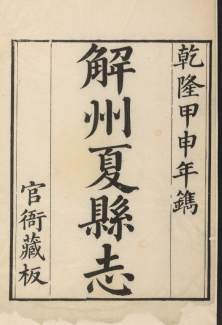 乾隆甲申年鐫
解州夏縣志
官衙藏板